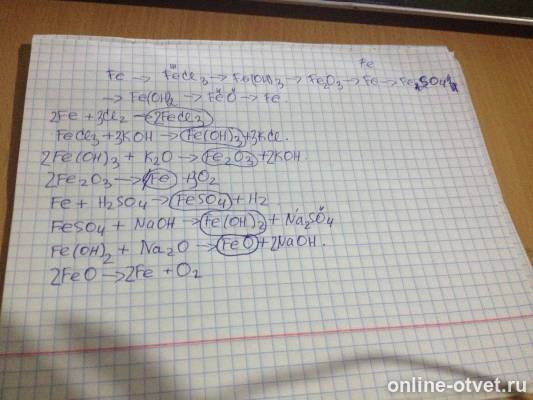 Fe
Fe → FeCl3 → Fe(OH)3 → Fe2O3 → Fe → FeSO4
→ Fe(OH)2 → FeO → Fe
2Fe + 3Cl2 → 2FeCl3
FeCl3 + 3KOH → Fe(OH)3 + 3KCl.
2Fe(OH)3 + K2O → Fe2O3 + 2KOH
2Fe2O3 → Fe + 3O2
Fe + H2SO4 → FeSO4 + H2
FeSO4 + NaOH → Fe(OH)2 + Na2SO4
Fe(OH)2 + Na2O → FeO + 2NaOH.
2FeO → 2Fe + O2
online-otvet.ru